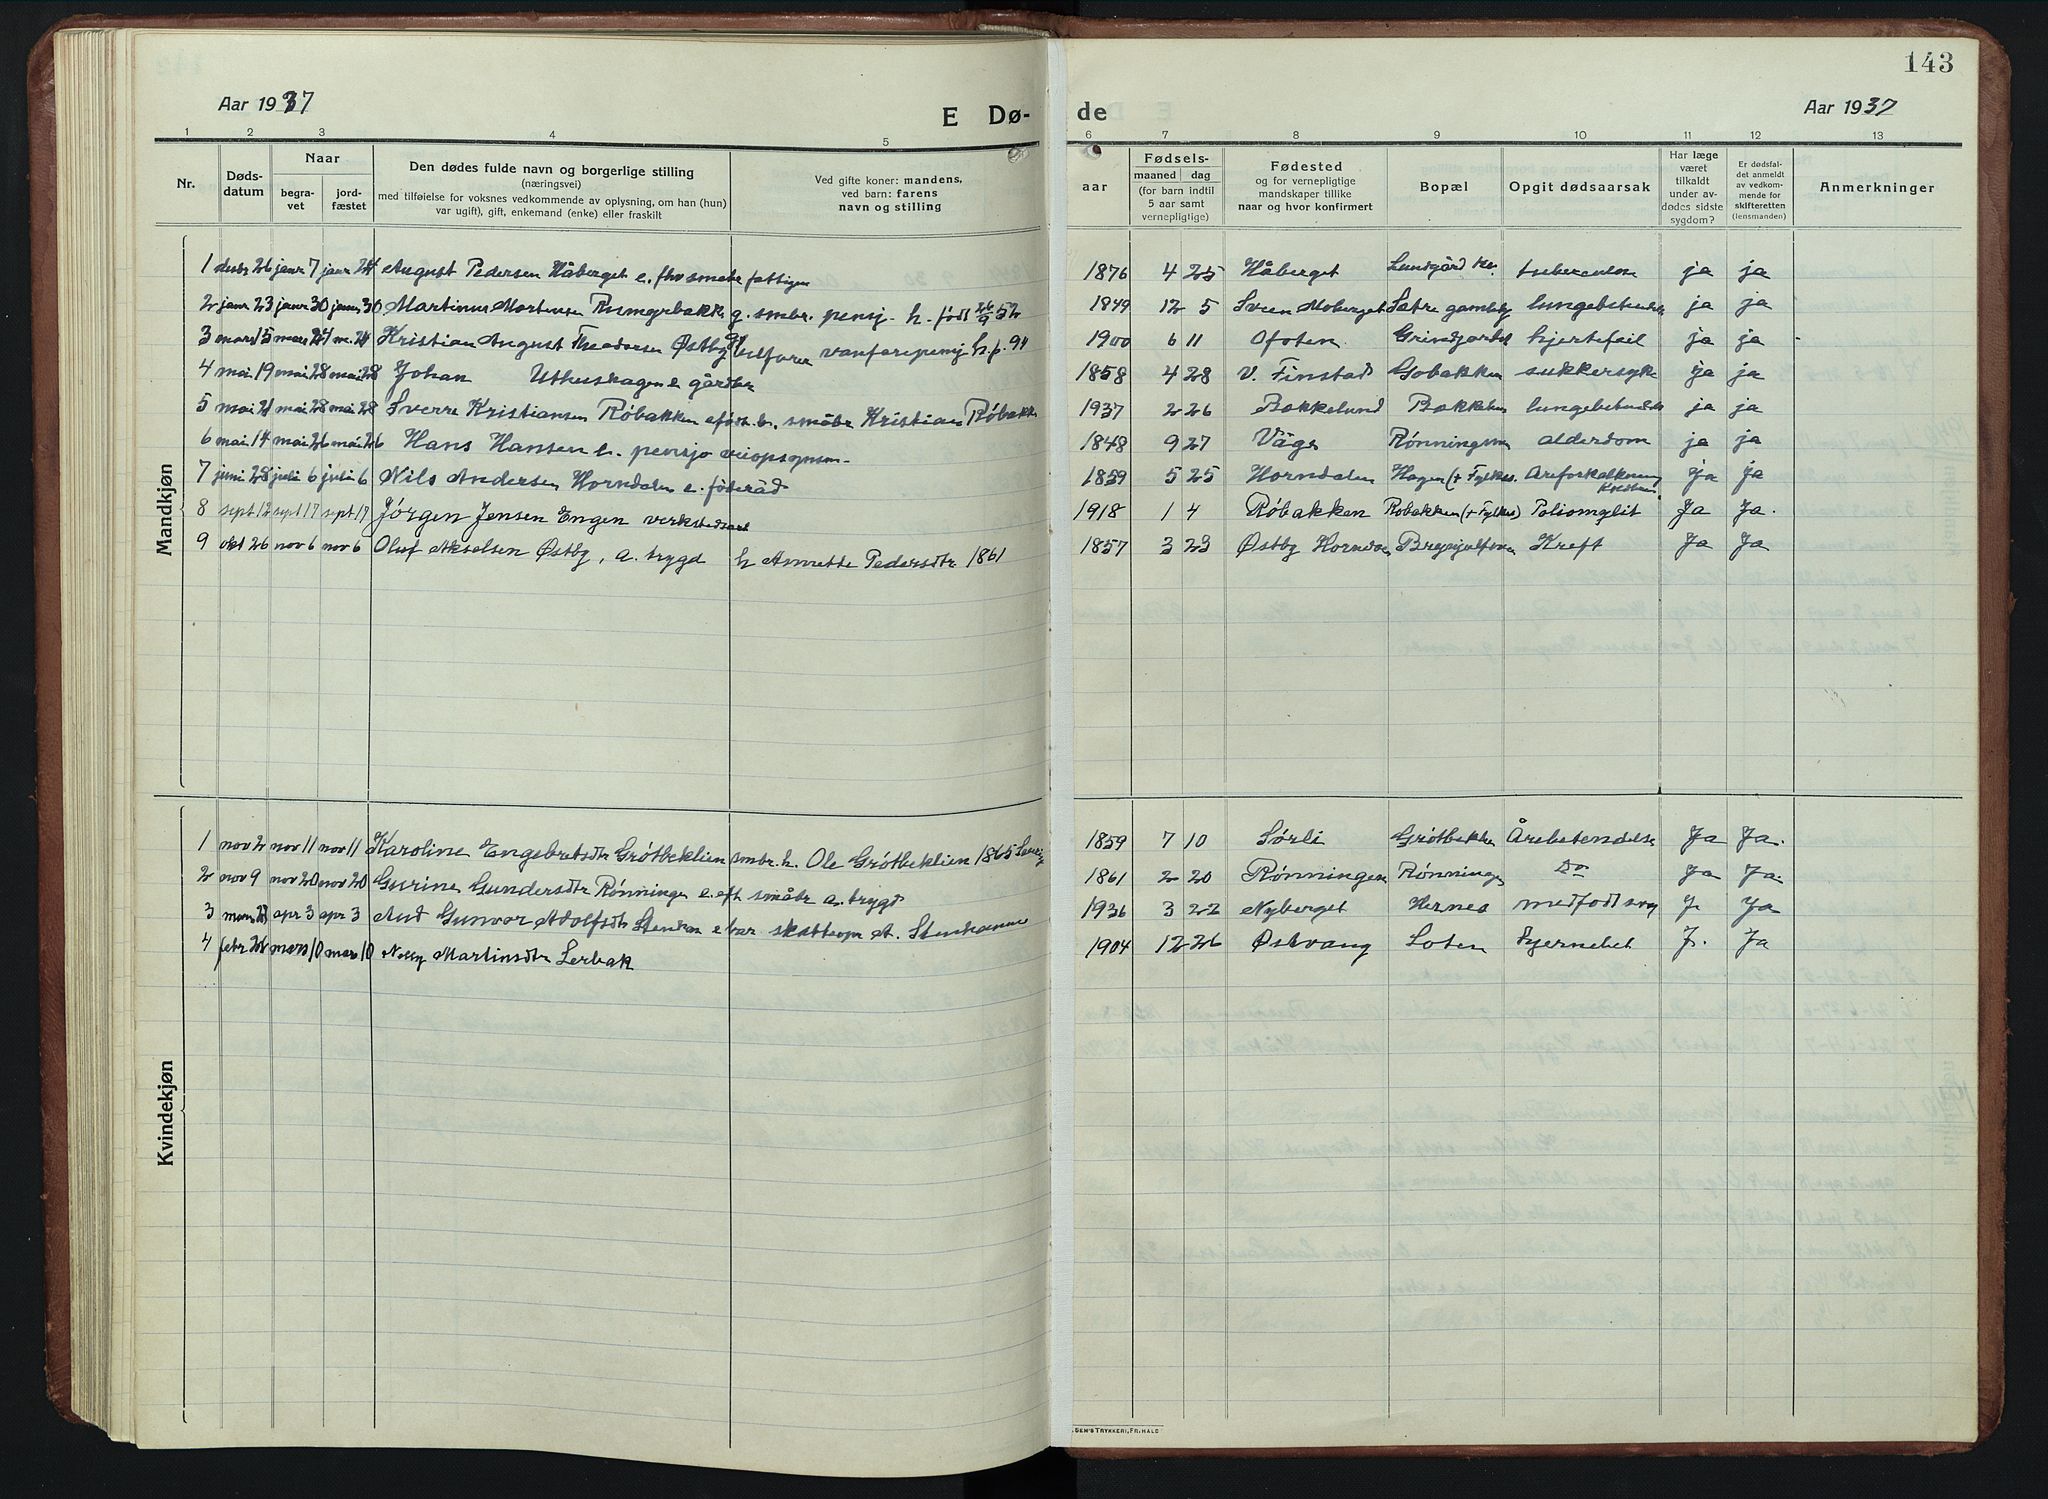 143
Aar 1937
E Dø-
de
Aar 1937
1 2 3 4 5 6 7 8 9 10 11 12 13
Nr.
Døds-
datum
Naar
begra-
vet
jord-
fæstet
Den dødes fulde navn og borgerlige stilling
(næringsvei)
med tilføielse for voksnes vedkommende av oplysning, om han (hun)
var ugift), gift, enkemand (enke) eller fraskilt
Ved gifte koner: mandens,
ved barn: farens
navn og stilling
aar
Fødsels-
maaned dag
(for barn indtil
5 aar samt
vernepligtige)
Fødested
og for vernepligtige
mandskaper tillike
naar og hvor konfirmert
Bopæl
Opgit dødsaarsak
Har læge
været
tilkaldt
under av-
dødes sidste
sygdom?
Er dødsfal-
det anmeldt
av vedkom-
mende for
skifteretten
(lensmanden)
Anmerkninger
Mandkjøn
1 26 janr 7 janr 24 August Pedersen Håberget e. fhv smabr fattigen 1876 4 25 Håberget Lundgård tuberculose ja ja
2 janr 23 janr 30 janr 30 Martinus Mortensen g. smbr. pensj. h. født 26/9 52 1849 12 5 Sveen Moberget Sætre ja ja
3 mars 15 mars 24 m. 24 Kristian August Theodorsen Østby vanførepensj h. f. 94 1900 6 11 Ofoten Grindjordet hjertefeil ja ja
4 mai 19 mai 28 mai 28 Johan Uthuskagen e gårdbr 1858 4 28 V. Finstad Gobakken sukkersyke ja ja
5 mai 21 mai 28 mai 28 Sverre Kristiansen Røbakken småbr Kristian Røbakken 1937 2 26 Bakkelund ja ja
6 mai 14 mai 26 mai 26 Hans Hansen 1848 9 27 Våge Rønningen alderdom ja ja
7 juni 28 juli 6 juli 6 Nils Andersen Horndalen e. føderåd 1859 5 25 Horndalen Hagen (+ Fylkes. Areforkalkning Ja Ja
8 sept 12 sept 17 sept 17 Jørgen Jensen Engen 1918 1 4 Røbakken Røbakken (+ Fylkes) Ja Ja.
9 okt 26 nov 6 nov 6 Oluf Akselsen Østby, a. trygd h Annette Pedersdtr 1861 1857 3 23 Østby Kreft Ja Ja
Kvindekjøn
1 nov 2 nov 11 nov 11 Karoline Engebretsdtr Grøtbeklien smbr. h. Ole Grøtbeklien 1865 1859 7 10 Sørli Årebetendelse Ja Ja.
2 nov 9 nov 20 nov 20 Gurine Gundersdtr Rønningen e. eft småbr a. trygd 1861 2 20 Rønningen Rønningen Do Ja Ja.
3 mars apr 3 apr 3 Aud Gunvor Adolfsdtr skatteopr A. 1936 3 22 Nyberget Hernes J. Ja
4 febr mars 10 mars 10 Nelly Martinsdtr Lerbak 1904 12 26 Østvang Løten J. Ja
GEM'S TRYKKERI, FR. HALD